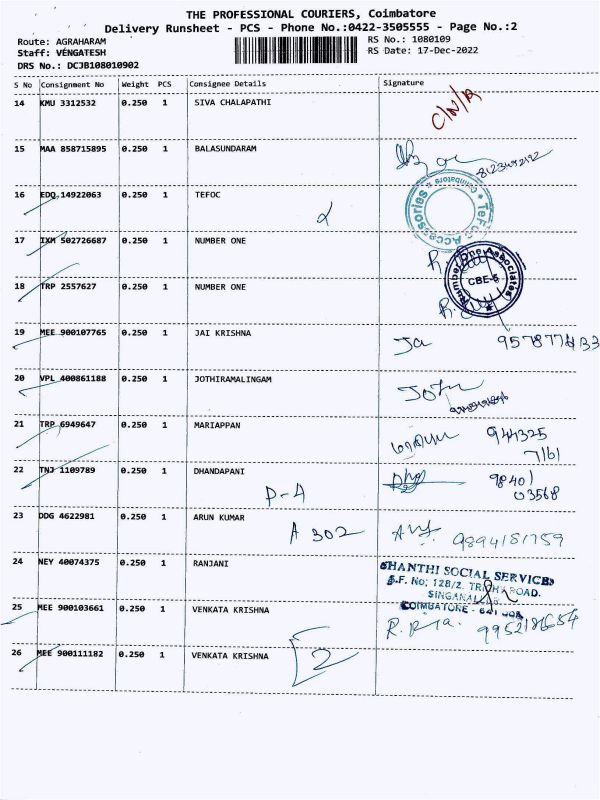 THE PROFESSIONAL COURIERS, Coimbatore
Delivery Runsheet - PCS - Phone No.:0422-3505555 - Page No.:2
Route: AGRAHARAM
RS No.: 1080109
Staff: VENGATESH
RS Date: 17-Dec-2022
DRS No.: DCJB108010902
S No Consignment No Weight PCS Consignee Details Signature
14 KMU 3312532 0.250 1 SIVA CHALAPATHI C/N/A
15 MAA 858715895 0.250 1 BALASUNDARAM
16 EDQ 14922063 0.250 1 TEFOC
TeFoc Accessories * Coimbatore *
17 IXM 502726687 0.250 1 NUMBER ONE
Number One Associates
CBE-5
18 TRP 2557627 0.250 1 NUMBER ONE
19 MEE 900107765 0.250 1 JAI KRISHNA Ja
20 VPL 400861188 0.250 1 JOTHIRAMALINGAM
21 TRP 6949647 0.250 1 MARIAPPAN 944325
7161
22 TNJ 1109789 0.250 1 DHANDAPANI 98401
D-A 03568
23 DDG 4622981 0.250 1 ARUN KUMAR
A 302 9894181759
24 NEY 40074375 0.250 1 RANJANI
SHANTHI SOCIAL SERVICES
S.F. No: 128/2. TRICHY ROAD.
SINGANALLUR
COIMBATORE - 641 005
25 MEE 900103661 0.250 1 VENKATA KRISHNA
26 MEE 900111182 0.250 1 VENKATA KRISHNA 2